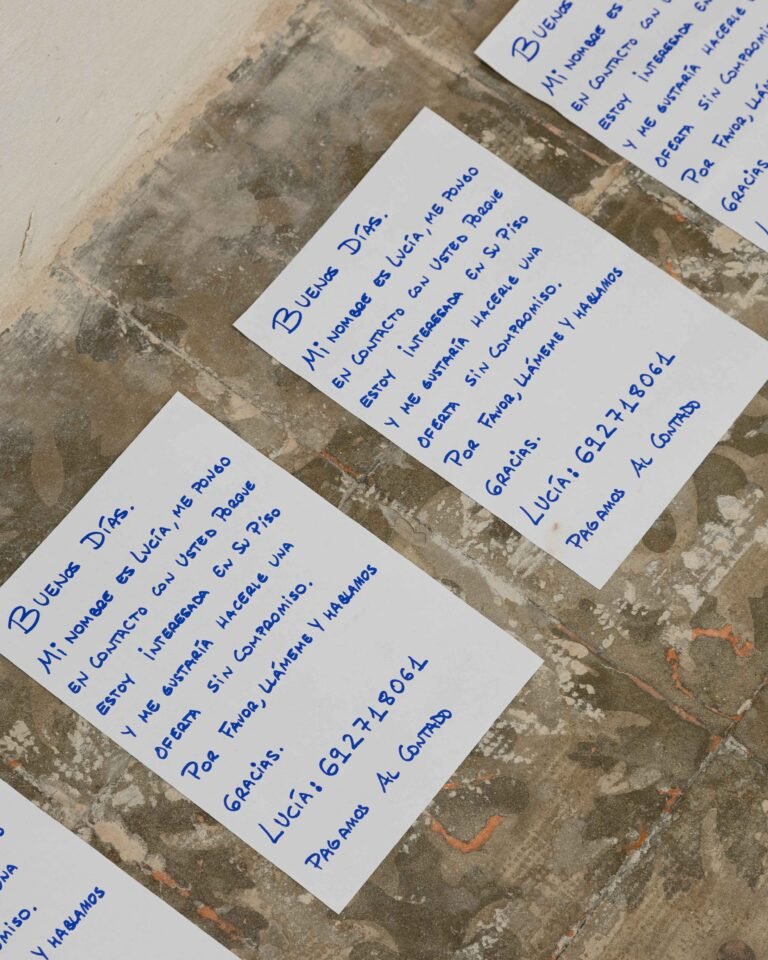 Buenos
Mi nombre es
en contacto con
estoy interesada en
y me gustaría hacerle
oferta sin compromiso
Por favor,
Gracias.
Buenos Días.
Mi nombre es Lucía, me pongo
en contacto con usted porque
estoy interesada en su piso
y me gustaría hacerle una
oferta sin compromiso.
Por favor, llámeme y hablamos
Gracias.
Lucía: 692718061
Pagamos al contado
Buenos Días.
Mi nombre es Lucía, me pongo
en contacto con usted porque
estoy interesada en su piso
y me gustaría hacerle una
oferta sin compromiso.
Por favor, llámeme y hablamos
Gracias.
Lucía: 692718061
Pagamos al contado
una
y hablamos